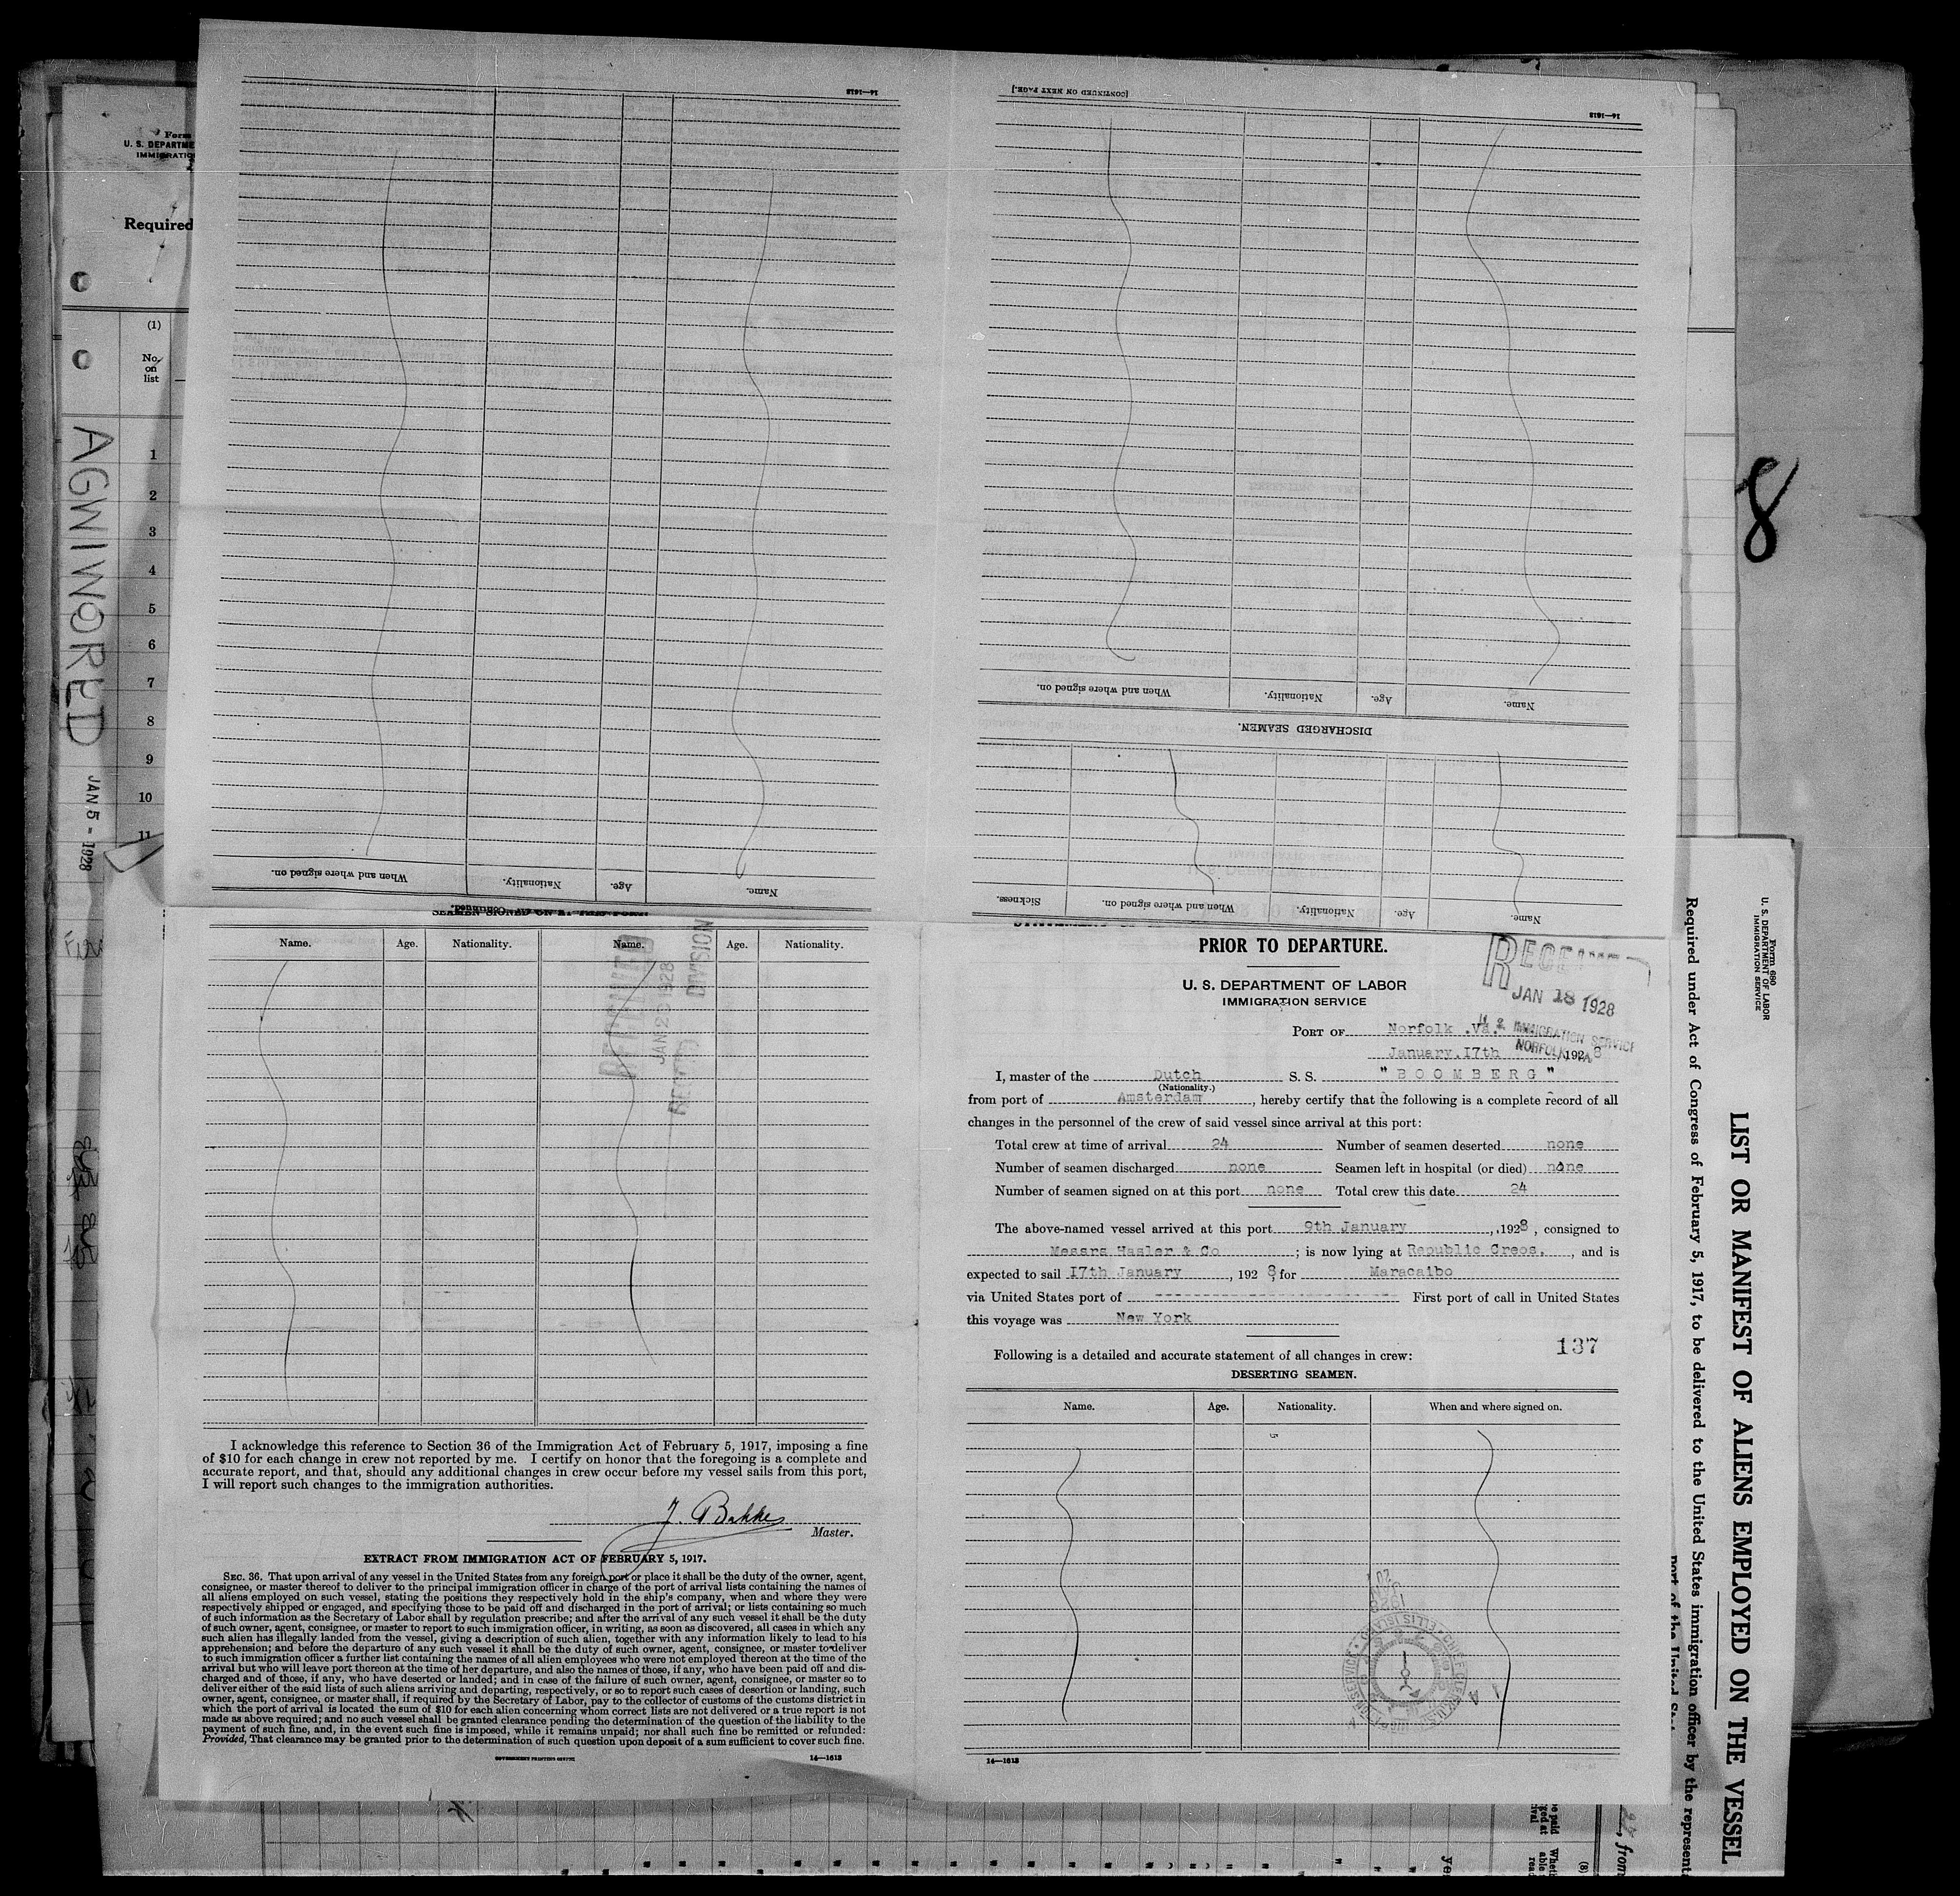 Form
U. S. DEPARTME
IMMIGRATIO
Required
(1)
No.
on
list
1
2
3
4
5
6
7
8
9
10
11
AGWIWORED
JAN 5 - 1928
14—1613
When and where signed on.
Nationality.
Age.
Name.
[CONTINUED ON NEXT PAGE.]
14—1613
When and where signed on.
Nationality.
Age.
Name.
DISCHARGED SEAMEN.
Sickness.
When and where signed on.
Nationality.
Age.
Name.
8
SEAMEN SIGNED ON AT THIS PORT—Continued.
Name.
Age.
Nationality.
Name.
Age.
Nationality.
DIVISION
I acknowledge this reference to Section 36 of the Immigration Act of February 5, 1917, imposing a fine
of $10 for each change in crew not reported by me. I certify on honor that the foregoing is a complete and
accurate report, and that, should any additional changes in crew occur before my vessel sails from this port,
I will report such changes to the immigration authorities.
J. Bakker
Master.
EXTRACT FROM IMMIGRATION ACT OF FEBRUARY 5, 1917.
SEC. 36. That upon arrival of any vessel in the United States from any foreign port or place it shall be the duty of the owner, agent,
consignee, or master thereof to deliver to the principal immigration officer in charge of the port of arrival lists containing the names of
all aliens employed on such vessel, stating the positions they respectively hold in the ship's company, when and where they were
respectively shipped or engaged, and specifying those to be paid off and discharged in the port of arrival; or lists containing so much
of such information as the Secretary of Labor shall by regulation prescribe; and after the arrival of any such vessel it shall be the duty
of such owner, agent, consignee, or master to report to such immigration officer, in writing, as soon as discovered, all cases in which any
such alien has illegally landed from the vessel, giving a description of such alien, together with any information likely to lead to his
apprehension; and before the departure of any such vessel it shall be the duty of such owner, agent, consignee, or master to deliver
to such immigration officer a further list containing the names of all alien employees who were not employed thereon at the time of the
arrival but who will leave port thereon at the time of her departure, and also the names of those, if any, who have been paid off and dis-
charged and of those, if any, who have deserted or landed; and in case of the failure of such owner, agent, consignee, or master so to
deliver either of the said lists of such aliens arriving and departing, respectively, or so to report such cases of desertion or landing, such
owner, agent, consignee, or master shall, if required by the Secretary of Labor, pay to the collector of customs of the customs district in
which the port of arrival is located the sum of $10 for each alien concerning whom correct lists are not delivered or a true report is not
made as above required; and no such vessel shall be granted clearance pending the determination of the question of the liability to the
payment of such fine, and, in the event such fine is imposed, while it remains unpaid; nor shall such fine be remitted or refunded:
Provided, That clearance may be granted prior to the determination of such question upon deposit of a sum sufficient to cover such fine.
GOVERNMENT PRINTING OFFICE
14—1613
PRIOR TO DEPARTURE.
U. S. DEPARTMENT OF LABOR
IMMIGRATION SERVICE
RECEIVED
JAN 18 1928
U. S. IMMIGRATION SERVICE
NORFOLK, VA
PORT OF Norfolk .Va.
January.17th , 1928
I, master of the Dutch S. S. " B O O M B E R G "
(Nationality.)
from port of Amsterdam, hereby certify that the following is a complete record of all
changes in the personnel of the crew of said vessel since arrival at this port:
Total crew at time of arrival 24 Number of seamen deserted none
Number of seamen discharged none Seamen left in hospital (or died) none
Number of seamen signed on at this port none Total crew this date 24
The above-named vessel arrived at this port 9th January, 1928, consigned to
Messrs Hasler & Co; is now lying at Republic Creos., and is
expected to sail 17th January, 1928, for Maracaibo
via United States port of ---------- First port of call in United States
this voyage was New York
137
Following is a detailed and accurate statement of all changes in crew:
DESERTING SEAMEN.
Name.
Age.
Nationality.
When and where signed on.
14—1613
Form 680
U. S. DEPARTMENT OF LABOR
IMMIGRATION SERVICE
LIST OR MANIFEST OF ALIENS EMPLOYED ON THE VESSEL
Required under Act of Congress of February 5, 1917, to be delivered to the United States immigration officer by the represent
port of the United Stat
, from
(8)